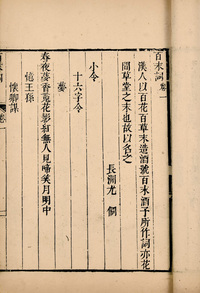 百末詞卷一
漢人以百花百草末造酒號百末酒予所作詞亦花
間草堂之末也故以名之
長洲尤侗
小令
十六字令
夢
春夜夢香鬼花影紅無人見啼笑月明中
憶王孫
懷卿謀